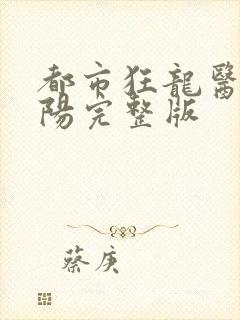 都市狂龍醫
陽完整版
蔡庚